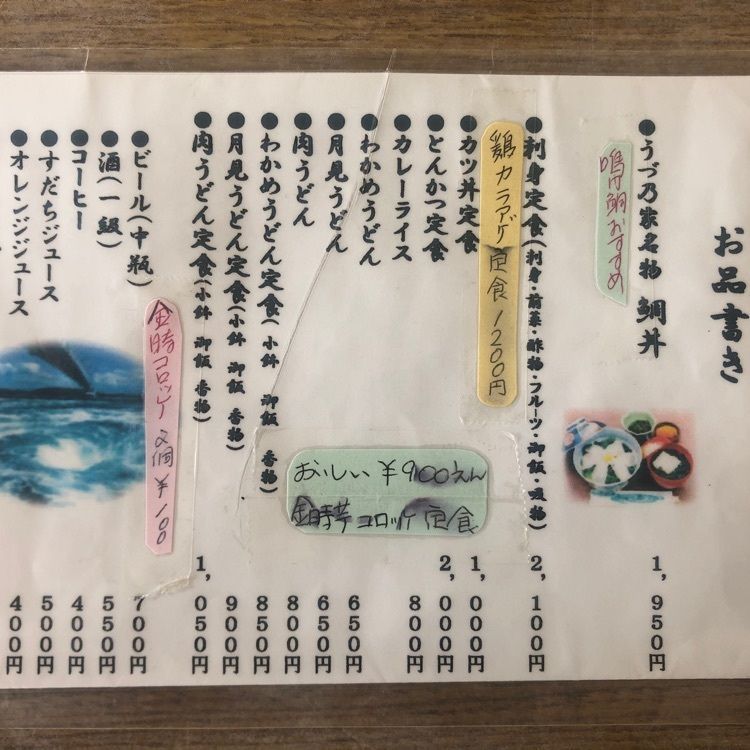 お品書き
●うづ乃家名物 鯛丼 1,950円
鳴門鯛おすすめ
●刺身定食(刺身・前菜・酢物・フルーツ・御飯・吸物) 2,100円
鶏カラアゲ定食 1200円
●カツ丼定食 1,000円
●とんかつ定食 2,000円
●カレーライス 800円
●わかめうどん 650円
●月見うどん 650円
●肉うどん 800円
おいしい ¥900えん
金時芋コロッケ定食
●わかめうどん定食(小鉢 御飯 香物) 850円
●月見うどん定食(小鉢 御飯 香物) 900円
●肉うどん定食(小鉢 御飯 香物) 1,050円
金時コロッケ 2個 ¥100
●ビール(中瓶) 700円
●酒(一級) 550円
●コーヒー 400円
●すだちジュース 500円
●オレンジジュース 400円